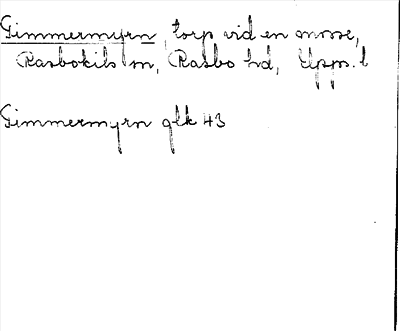 Gimmermyrn, torp vid en mosse,
Rasbokils sn, Rasbo hd, Upps. l
Gimmermyrn glk 43